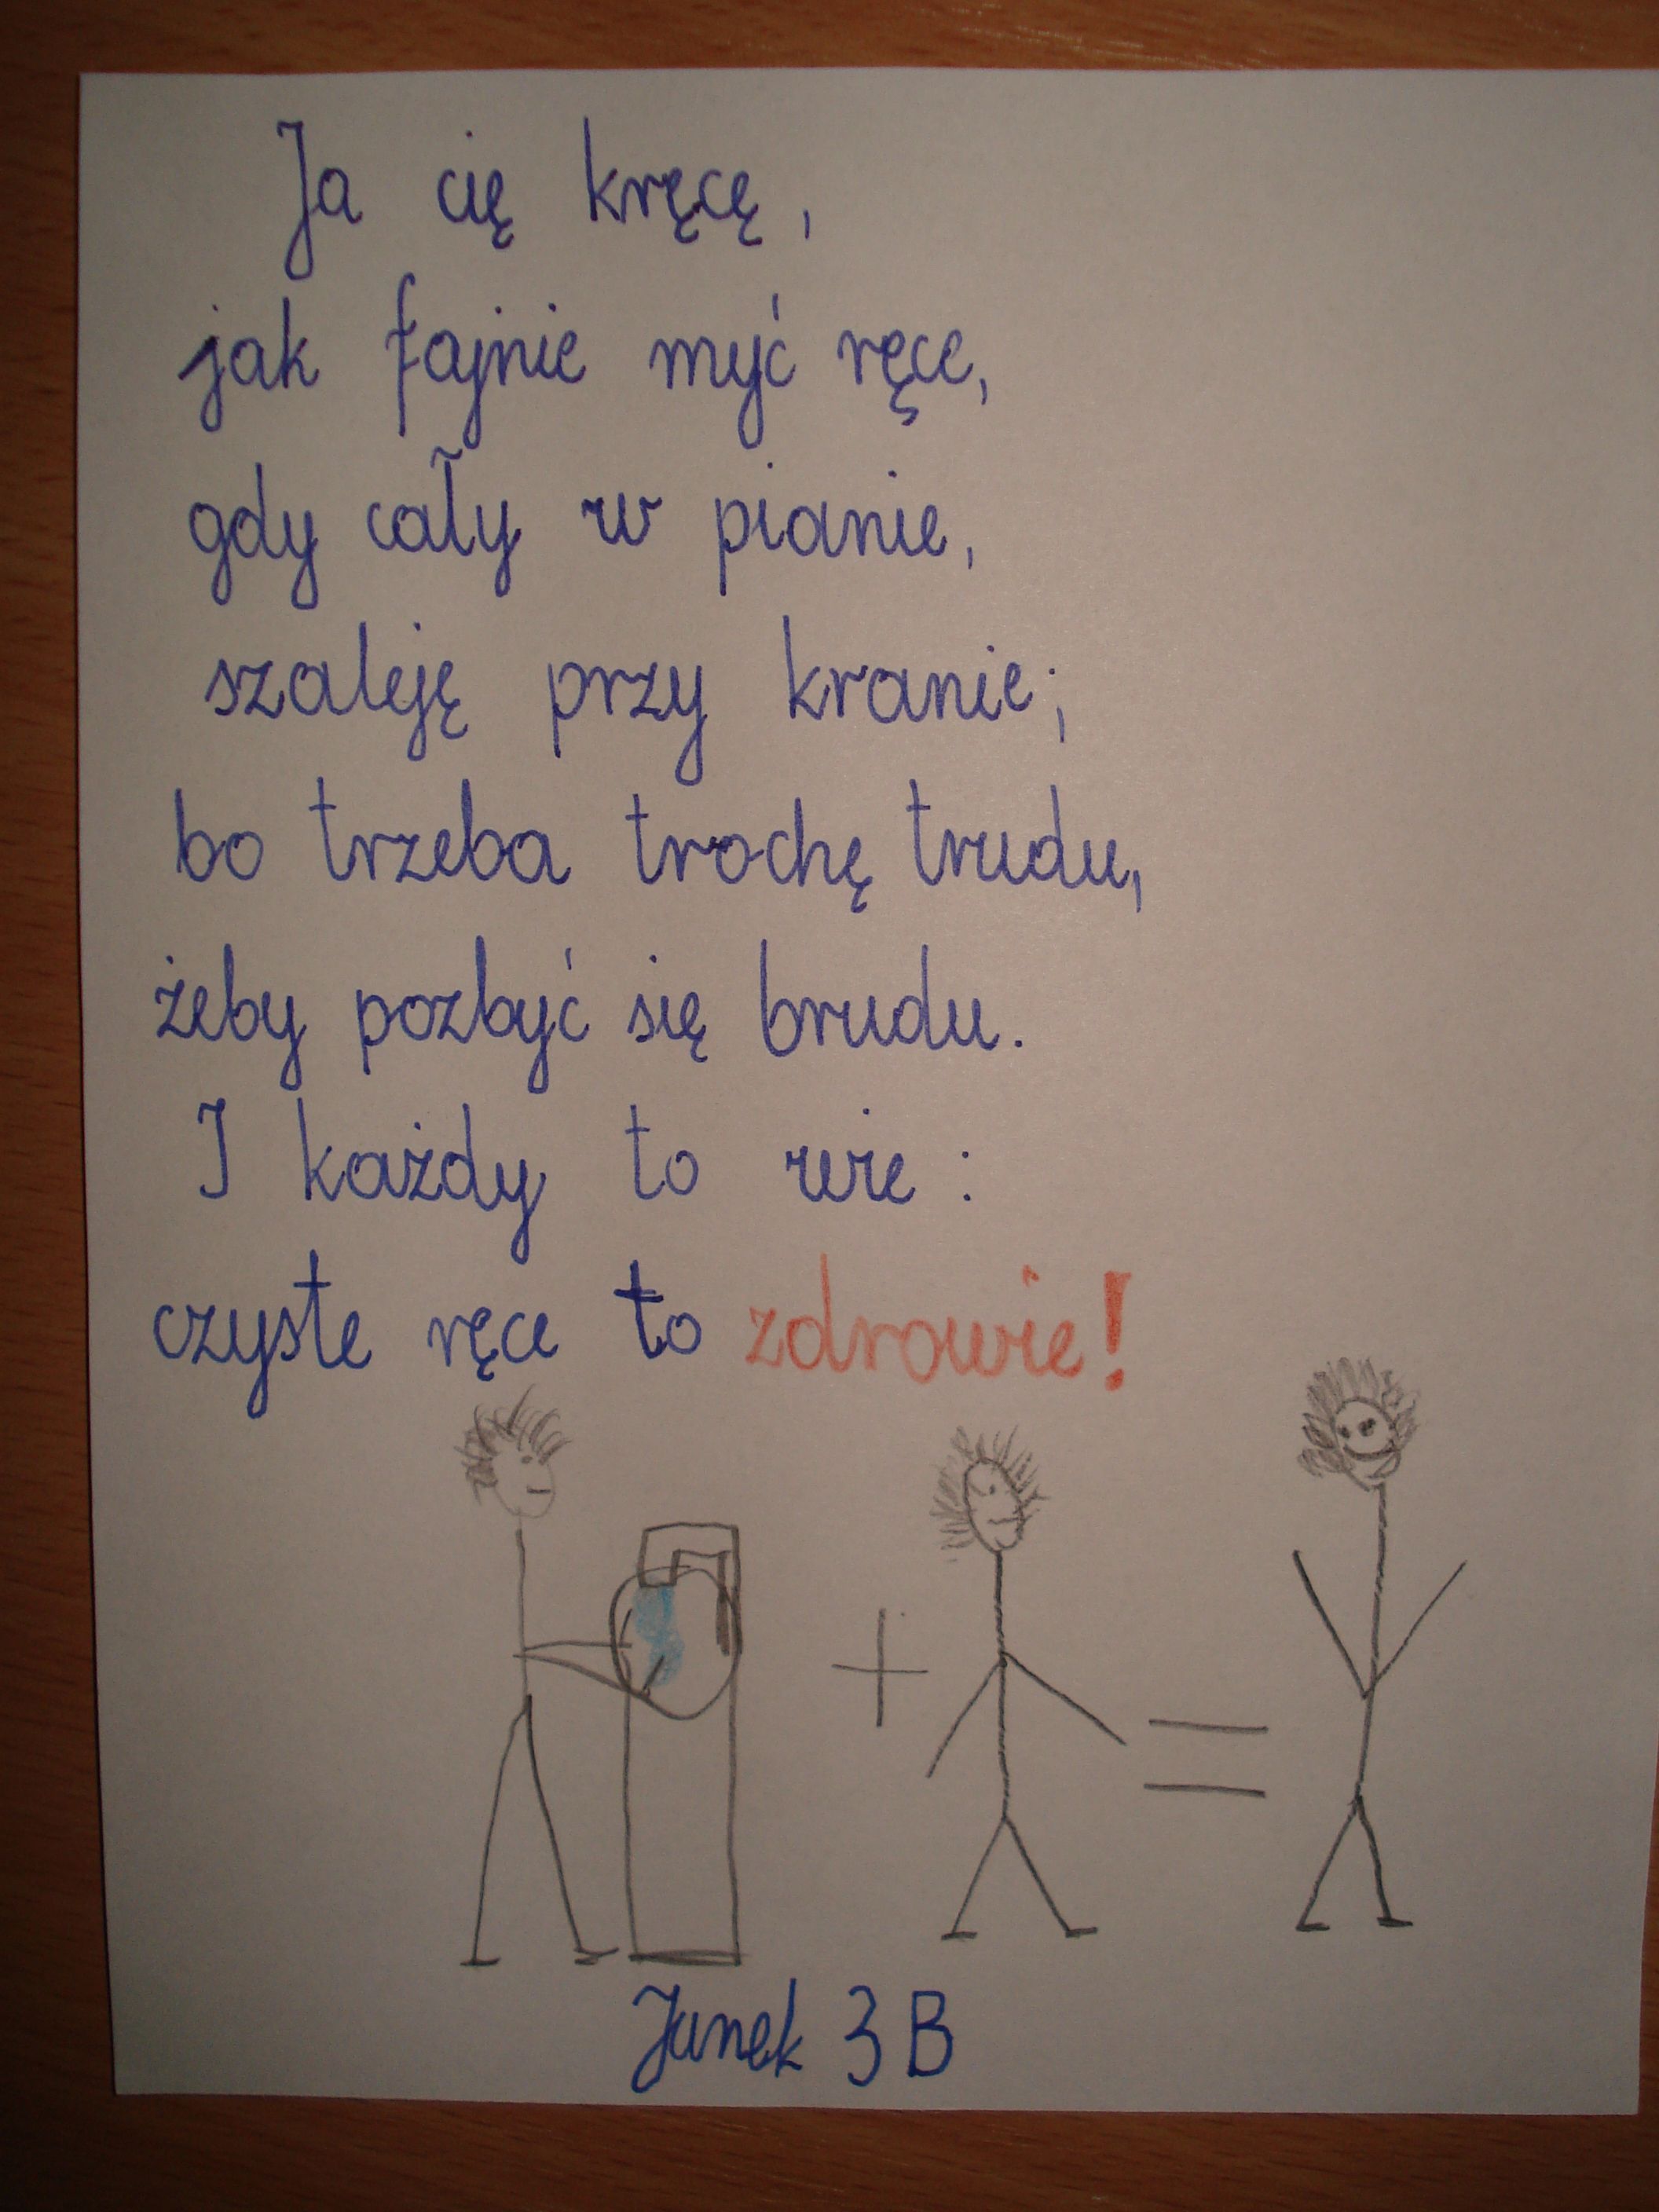 Ja cię kręcę,
jak fajnie myć ręce,
gdy cały w pianie,
szaleję przy kranie;
bo trzeba trochę trudu,
żeby pozbyć się brudu.
I każdy to wie:
czyste ręce to zdrowie!
+ =
Janek 3 B